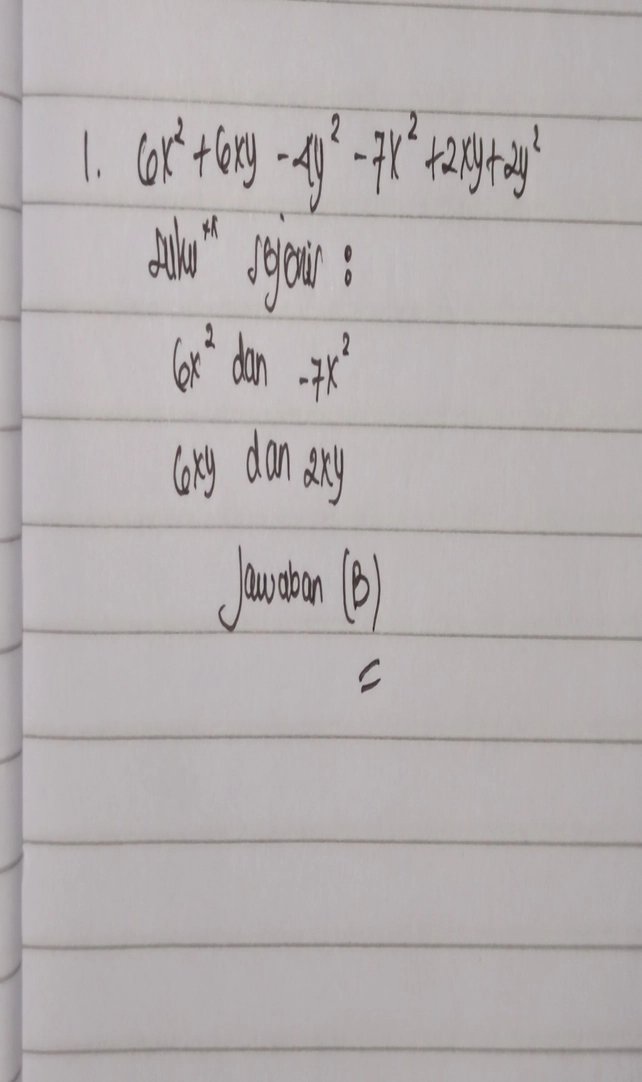 1. 6x² + 6xy - 4y² - 7x² + 2xy + 2y²
suku** sejenis :
6x² dan -7x²
6xy dan 2xy
Jawaban (B)
=